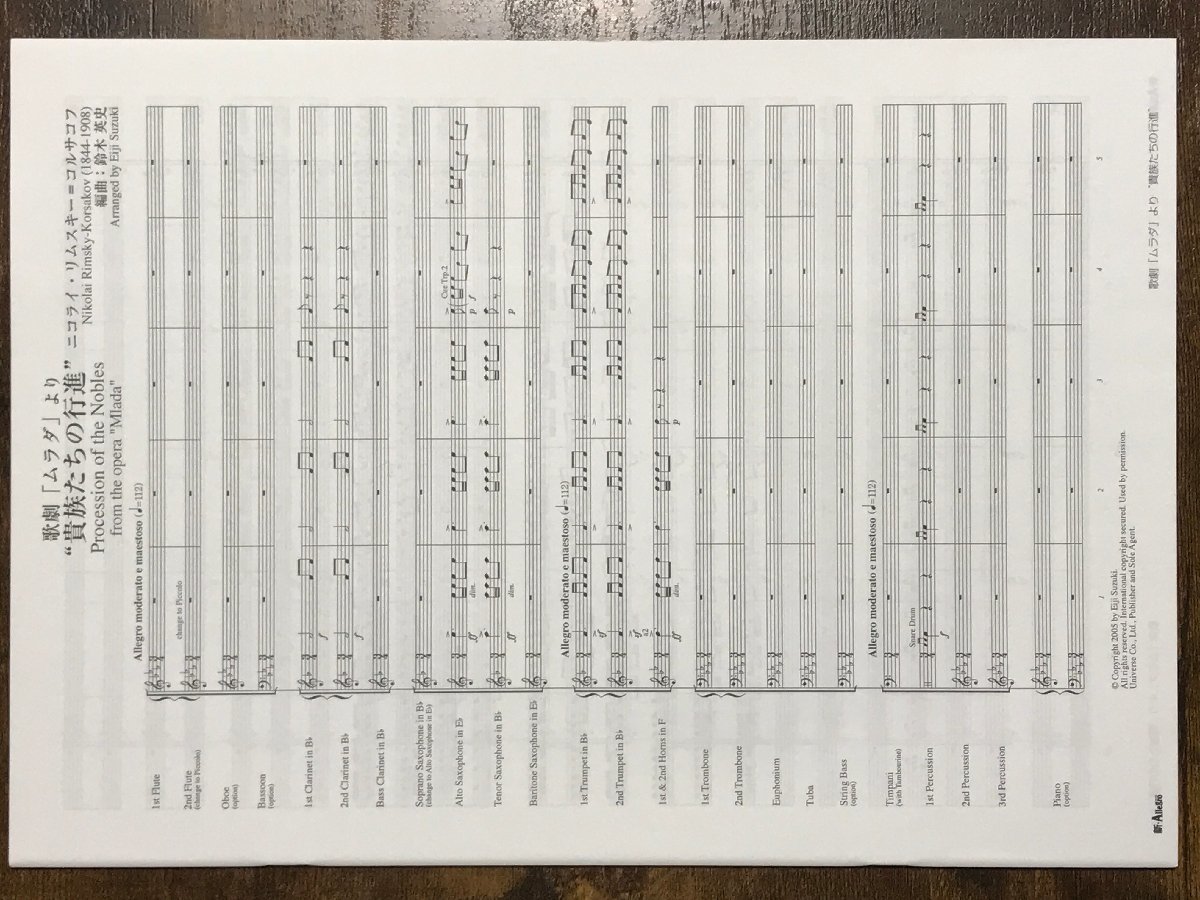 歌劇「ムラダ」より
“貴族たちの行進”
Procession of the Nobles
from the opera "Mlada"
ニコライ・リムスキー=コルサコフ
Nikolai Rimsky-Korsakov (1844-1908)
編曲：鈴木 英史
Arranged by Eiji Suzuki
Allegro moderato e maestoso (♩=112)
1st Flute
change to Piccolo
2nd Flute
(change to Piccolo)
Oboe
(option)
Bassoon
(option)
1st Clarinet in B♭
f
2nd Clarinet in B♭
f
Bass Clarinet in B♭
Soprano Saxophone in B♭
(change to Alto Saxophone in E♭)
Cue Trp.2
Alto Saxophone in E♭
ff dim. p f
Tenor Saxophone in B♭
ff dim. p
Baritone Saxophone in E♭
Allegro moderato e maestoso (♩=112)
1st Trumpet in B♭
ff
2nd Trumpet in B♭
ff
a2
1st & 2nd Horns in F
ff dim. p
1st Trombone
2nd Trombone
Euphonium
Tuba
String Bass
(option)
Allegro moderato e maestoso (♩=112)
Timpani
(with Tambourine)
Snare Drum
1st Percussion
f
2nd Percussion
3rd Percussion
Piano
(option)
1 2 3 4 5
© Copyright 2005 by Eiji Suzuki.
All rights reserved. International copyright secured. Used by permission.
Universe Co., Ltd., Publisher and Sole Agent.
歌劇「ムラダ」より “貴族たちの行進”